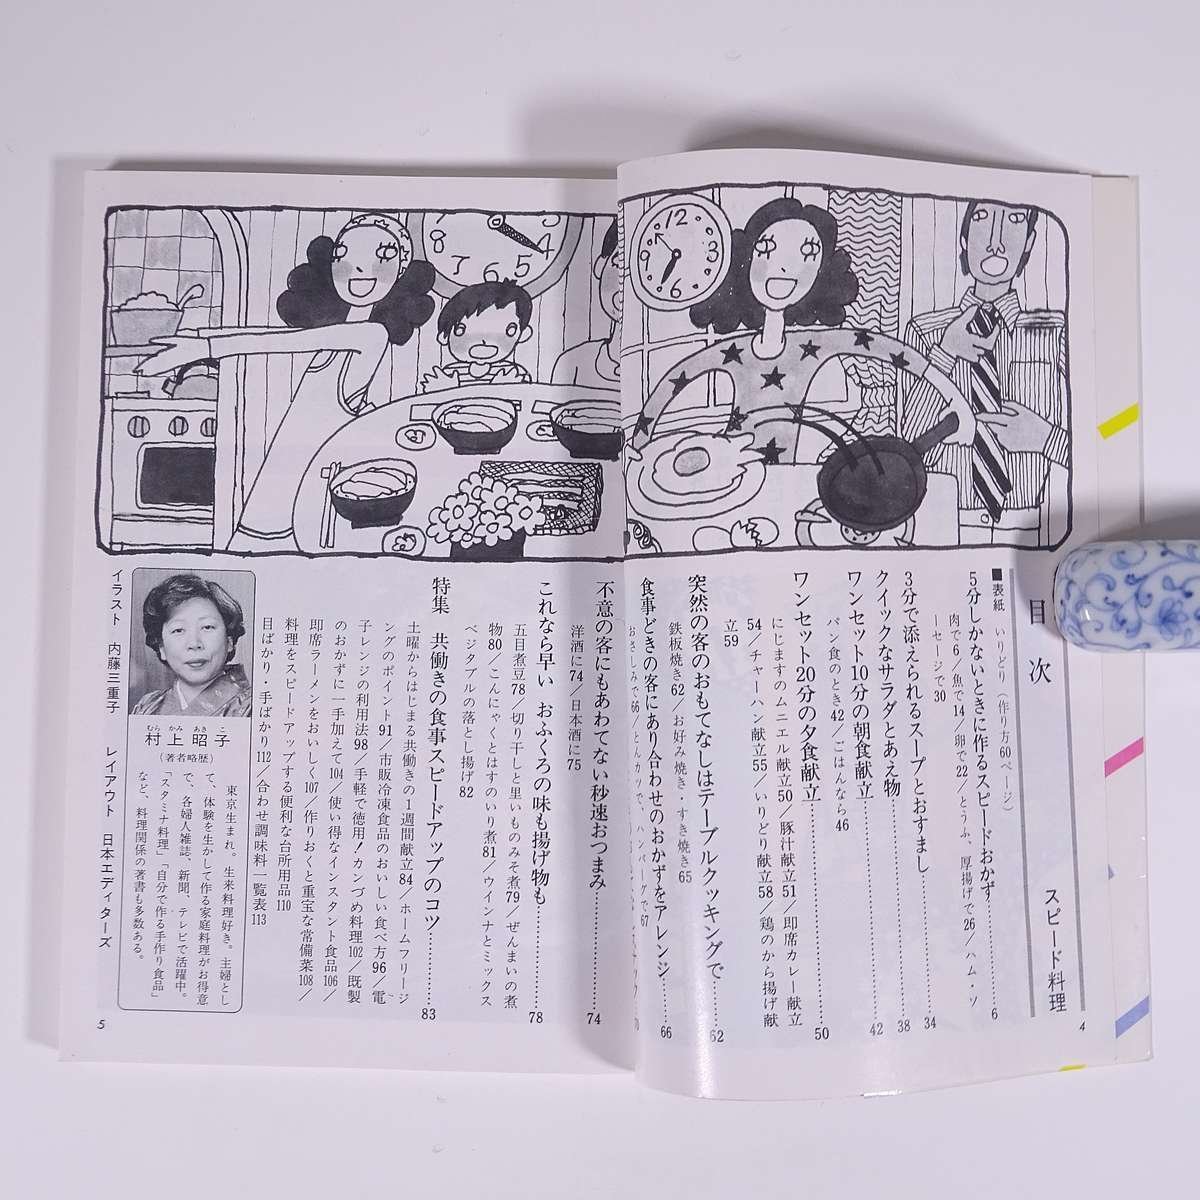 目次
スピード料理
■表紙 いりどり(作り方60ページ)
5分しかないときに作るスピードおかず……6
肉で6/魚で14/卵で22/とうふ、厚揚げで26/ハム・ソ
ーセージで30
3分で添えられるスープとおすまし……34
クイックなサラダとあえ物……38
ワンセット10分の朝食献立……42
パン食のとき42/ごはんなら46
ワンセット20分の夕食献立……50
にじますのムニエル献立50/豚汁献立51/即席カレー献立
54/チャーハン献立55/いりどり献立58/鶏のから揚げ献
立59
突然の客のおもてなしはテーブルクッキングで……62
鉄板焼き62/お好み焼き・すき焼き65
食事どきの客にあり合わせのおかずをアレンジ……66
おさしみで66/とんカツで、ハンバーグで67
70
不意の客にもあわてない秒速おつまみ……74
洋酒に74/日本酒に75
これなら早い おふくろの味も揚げ物も……78
五目煮豆78/切り干しと里いものみそ煮79/ぜんまいの煮
物80/こんにゃくとはすのいり煮81/ウインナとミックス
ベジタブルの落とし揚げ82
特集 共働きの食事スピードアップのコツ……83
土曜からはじまる共働きの1週間献立84/ホームフリージ
ングのポイント91/市販冷凍食品のおいしい食べ方96/電
子レンジの利用法98/手軽で徳用!カンづめ料理102/既製
のおかずに一手加えて104/使い得なインスタント食品106/
即席ラーメンをおいしく107/作りおくと重宝な常備菜108/
料理をスピードアップする便利な台所用品110
目ばかり・手ばかり112/合わせ調味料一覧表113
村上昭子
むらかみあきこ
(著者略歴)
東京生まれ。生来料理好き。主婦とし
て、体験を生かして作る家庭料理がお得意
で、各婦人雑誌、新聞、テレビで活躍中。
「スタミナ料理」「自分で作る手作り食品」
など、料理関係の著書も多数ある。
イラスト 内藤三重子 レイアウト 日本エディターズ
4
5
12
3
6
8
7
6
5
4